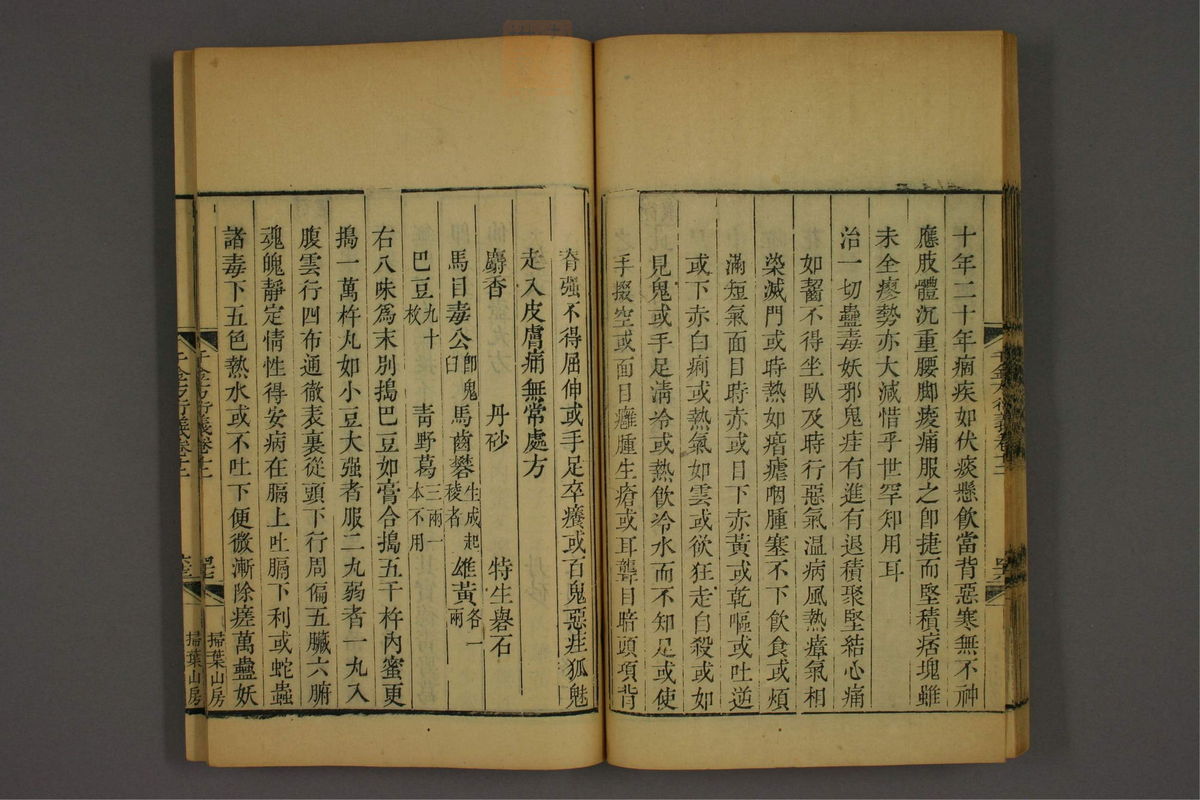 十年二十年痼疾如伏痰懸飲當背惡寒無不神
應肢體沉重腰脚痠痛服之卽捷而堅積痞塊雖
未全瘳勢亦大減惜乎世罕知用耳
治一切蠱毒妖邪鬼疰有進有退積聚堅結心痛
如齧不得坐臥及時行惡氣温病風熱瘴氣相
染滅門或時熱如瘖瘧咽腫塞不下飲食或煩
滿短氣面目時赤或目下赤黃或乾嘔或吐逆
或下赤白痢或熱氣如雲或欲狂走自殺或如
見鬼或手足淸冷或熱飲冷水而不知足或使
之手掇空或面目癰腫生瘡或耳聾目暗頭項背
脊强不得屈伸或手足卒癢或百鬼惡疰狐魅
走入皮膚痛無常處方
麝香 丹砂 特生礜石
馬目毒公卽鬼臼 馬齒礬生成起稜者 雄黃各一兩
巴豆九十枚 靑野葛三兩一本不用
右八味爲末別搗巴豆如膏合搗五千杵內蜜更
搗一萬杵丸如小豆大强者服二丸弱者一丸入
腹雲行四布通徹表裏從頭下行周徧五臟六腑
魂魄靜定情性得安病在膈上吐膈下利或蛇蟲
諸毒下五色熱水或不吐下便微漸除瘥萬蠱妖
千金方衍義卷十二
掃葉山房
掃葉山房